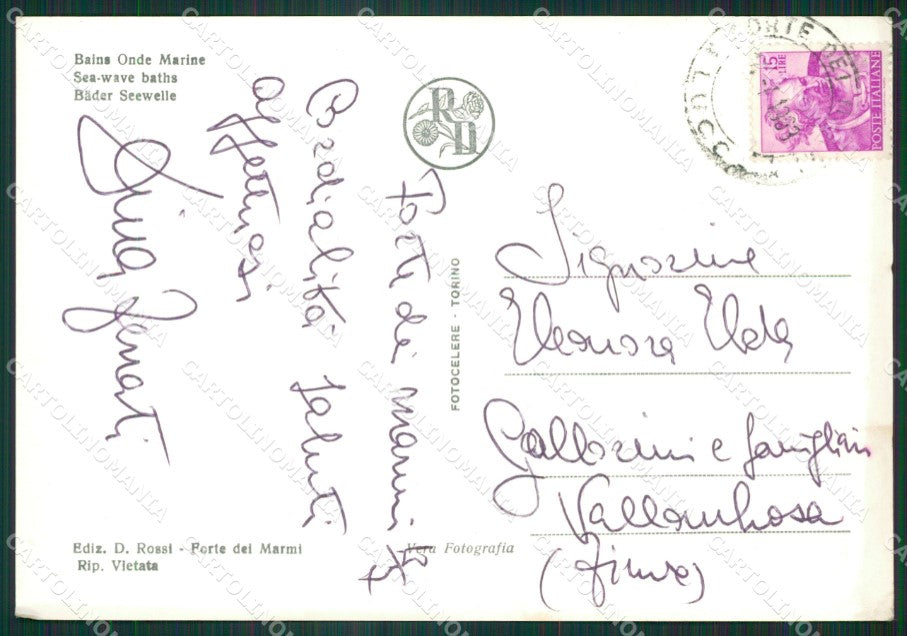 Bains Onde Marine
Sea-wave baths
Bäder Seewelle
RD
15
LIRE
POSTE ITALIANE
FORTE DEI
1963
Forte dei marmi
Cordialità saluti
affettuosi
FOTOCELERE - TORINO
Signorine
Eleonora Elda
Gallorini e famigliari
Vallombrosa
(Firenze)
Ediz. D. Rossi - Forte dei Marmi
Rip. Vietata
Vera Fotografia
CARTOLINOMANIA